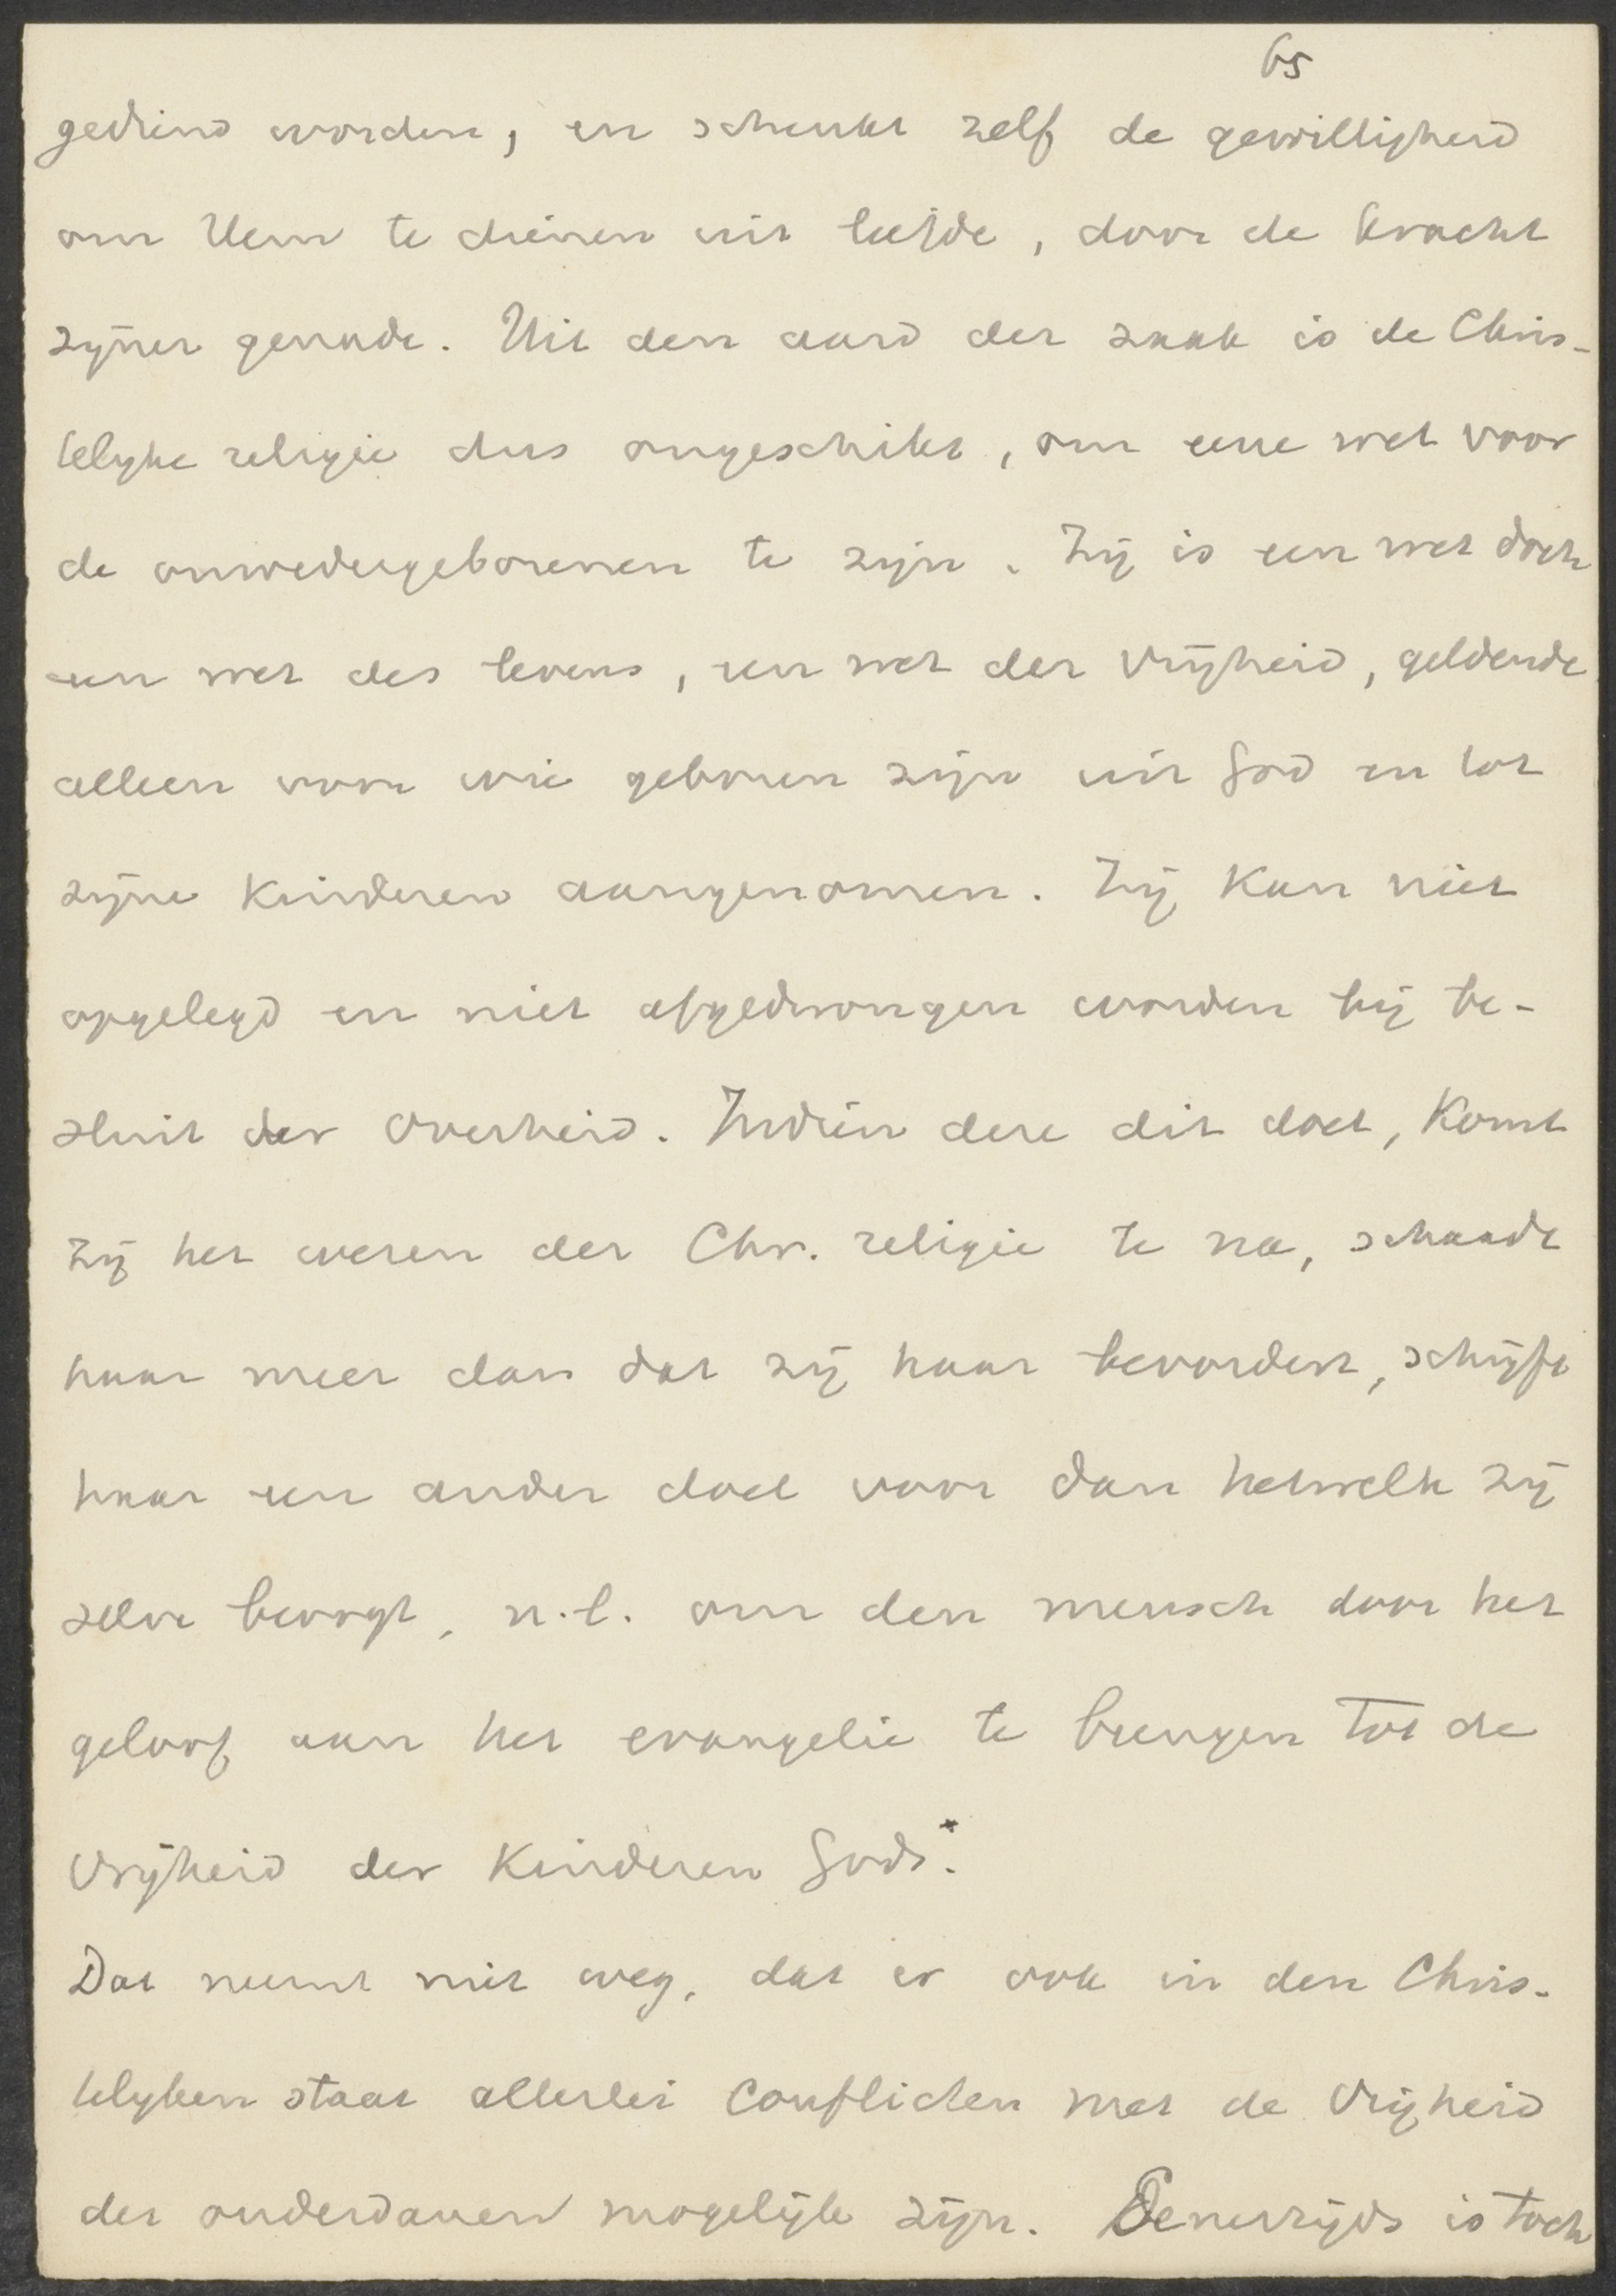 65
gediend worden, en schenkt zelf de gewilligheid
om Hem te dienen uit liefde, door de kracht
zijner genade. Uit den aard der zaak is de Chris-
telijke religie dus ongeschikt, om eene wet voor
de onwedergeborenen te zijn. Zij is een wet doch
een wet des levens, een wet der vrijheid, geldende
alleen voor wie geboren zijn uit God en tot
zijne kinderen aangenomen. Zij kan niet
opgelegd en niet afgedwongen worden bij be-
sluit der overheid. Indien deze dit doet, komt
zij het wezen der Chr. religie te na, schaadt
haar meer dan dat zij haar bevordert, schrijft
haar een ander doel voor dan hetwelk zij
zelve beoogt, n.l. om den mensch door het
geloof aan het evangelie te brengen tot de
vrijheid der kinderen Gods.*
Dat neemt niet weg, dat er ook in den Chris-
telijken staat allerlei conflicten met de vrijheid
der onderdanen mogelijk zijn. Eenerzijds is toch